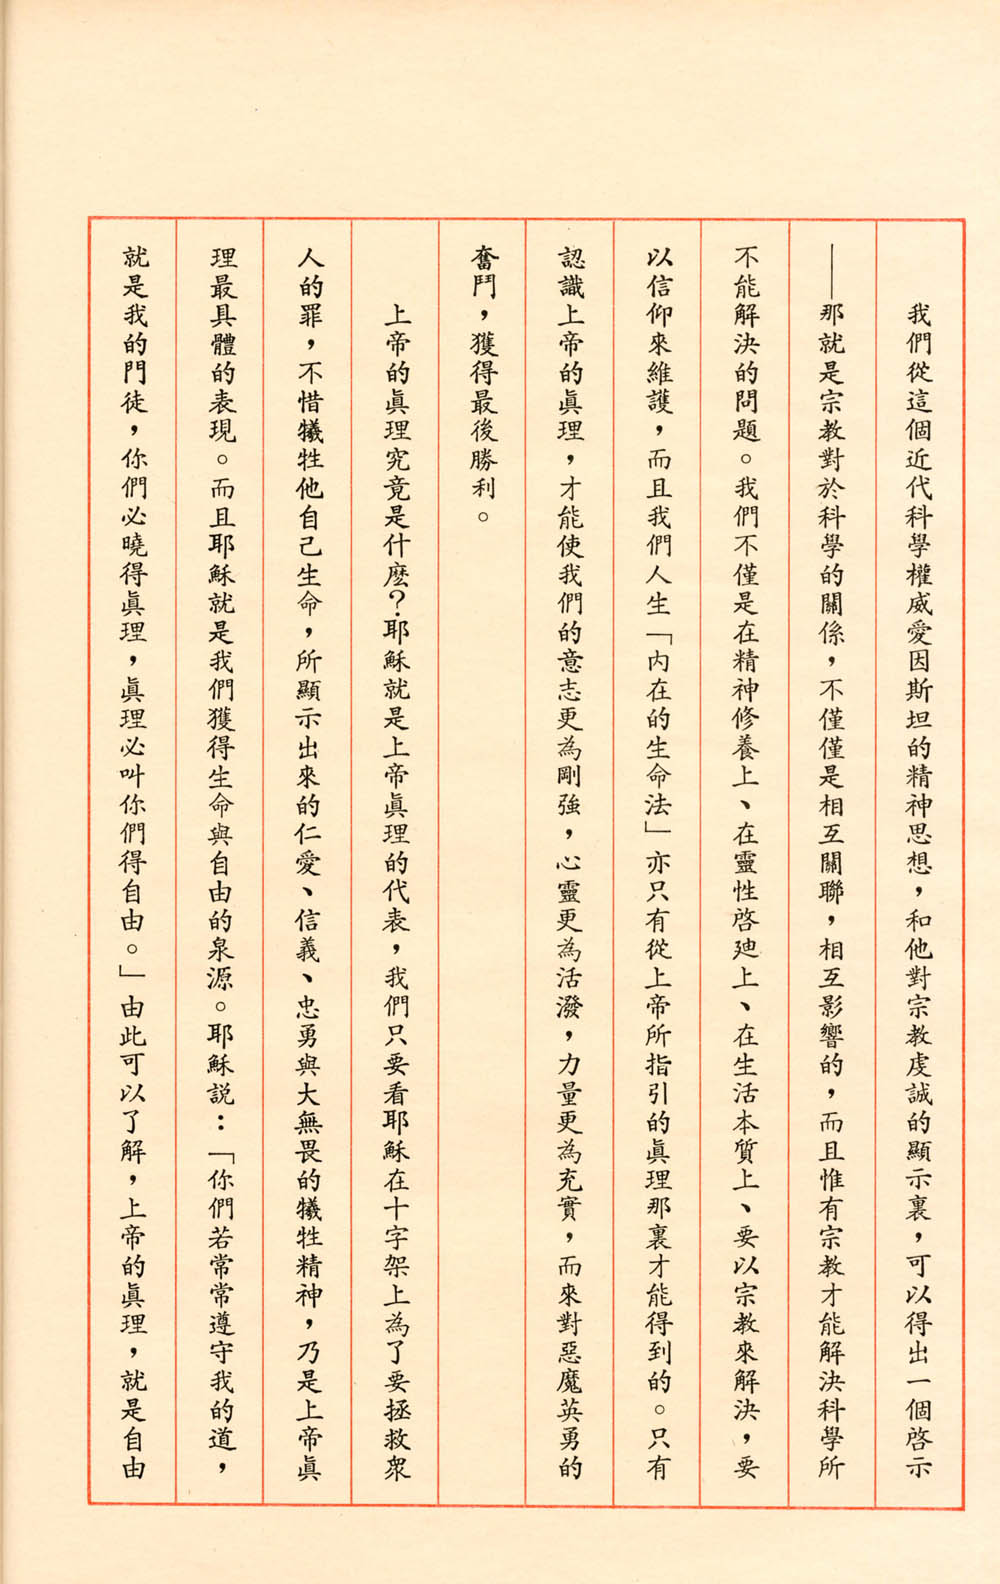 我們從這個近代科學權威愛因斯坦的精神思想，和他對宗教虔誠的顯示裏，可以得出一個啓示
——那就是宗教對於科學的關係，不僅僅是相互關聯，相互影響的，而且惟有宗教才能解決科學所
不能解決的問題。我們不僅是在精神修養上、在靈性啓廸上、在生活本質上、要以宗教來解決，要
以信仰來維護，而且我們人生「內在的生命法」亦只有從上帝所指引的眞理那裏才能得到的。只有
認識上帝的眞理，才能使我們的意志更為剛強，心靈更為活潑，力量更為充實，而來對惡魔英勇的
奮鬥，獲得最後勝利。
上帝的眞理究竟是什麽？耶穌就是上帝眞理的代表，我們只要看耶穌在十字架上為了要拯救衆
人的罪，不惜犧牲他自己生命，所顯示出來的仁愛、信義、忠勇與大無畏的犧牲精神，乃是上帝眞
理最具體的表現。而且耶穌就是我們獲得生命與自由的泉源。耶穌說：「你們若常常遵守我的道，
就是我的門徒，你們必曉得眞理，眞理必叫你們得自由。」由此可以了解，上帝的眞理，就是自由